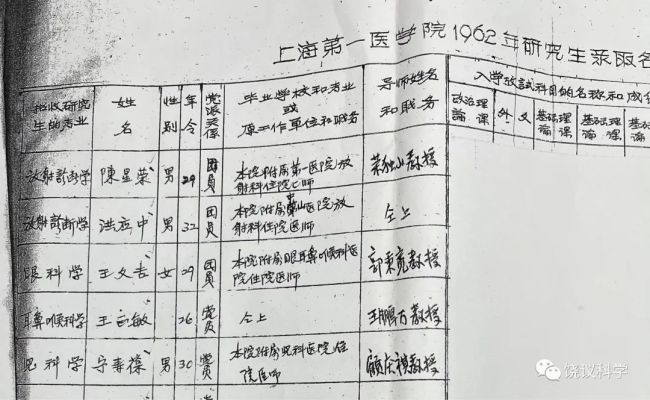 上海第一医学院1962年研究生录取名
招收研究
生的专业
姓
名
性
别
年
令
党派关係
毕业学校和专业
或
原工作单位和职务
导师姓名
和职务
入学考試科目的名称和成
政治理
論課
外文
基础理
論課
基础理
論課
基
論
放射診断学 陳星荣 男 29 团員 本院附属第一医院放
射科住院医师 荣独山教授
放射診断学 洪应中 男 32 团員 本院附属中山医院放
射科住院医师 仝上
眼科学 王文吉 女 29 团員 本院附属眼耳鼻喉科医
院住院医师 郭秉宽教授
耳鼻喉科学 王正敏 26 党員 仝上 王鹏万教授
児科学 宁寿葆 男 30 党員 本院附属児科医院住
院医师 顾友祺教授
饶议科学